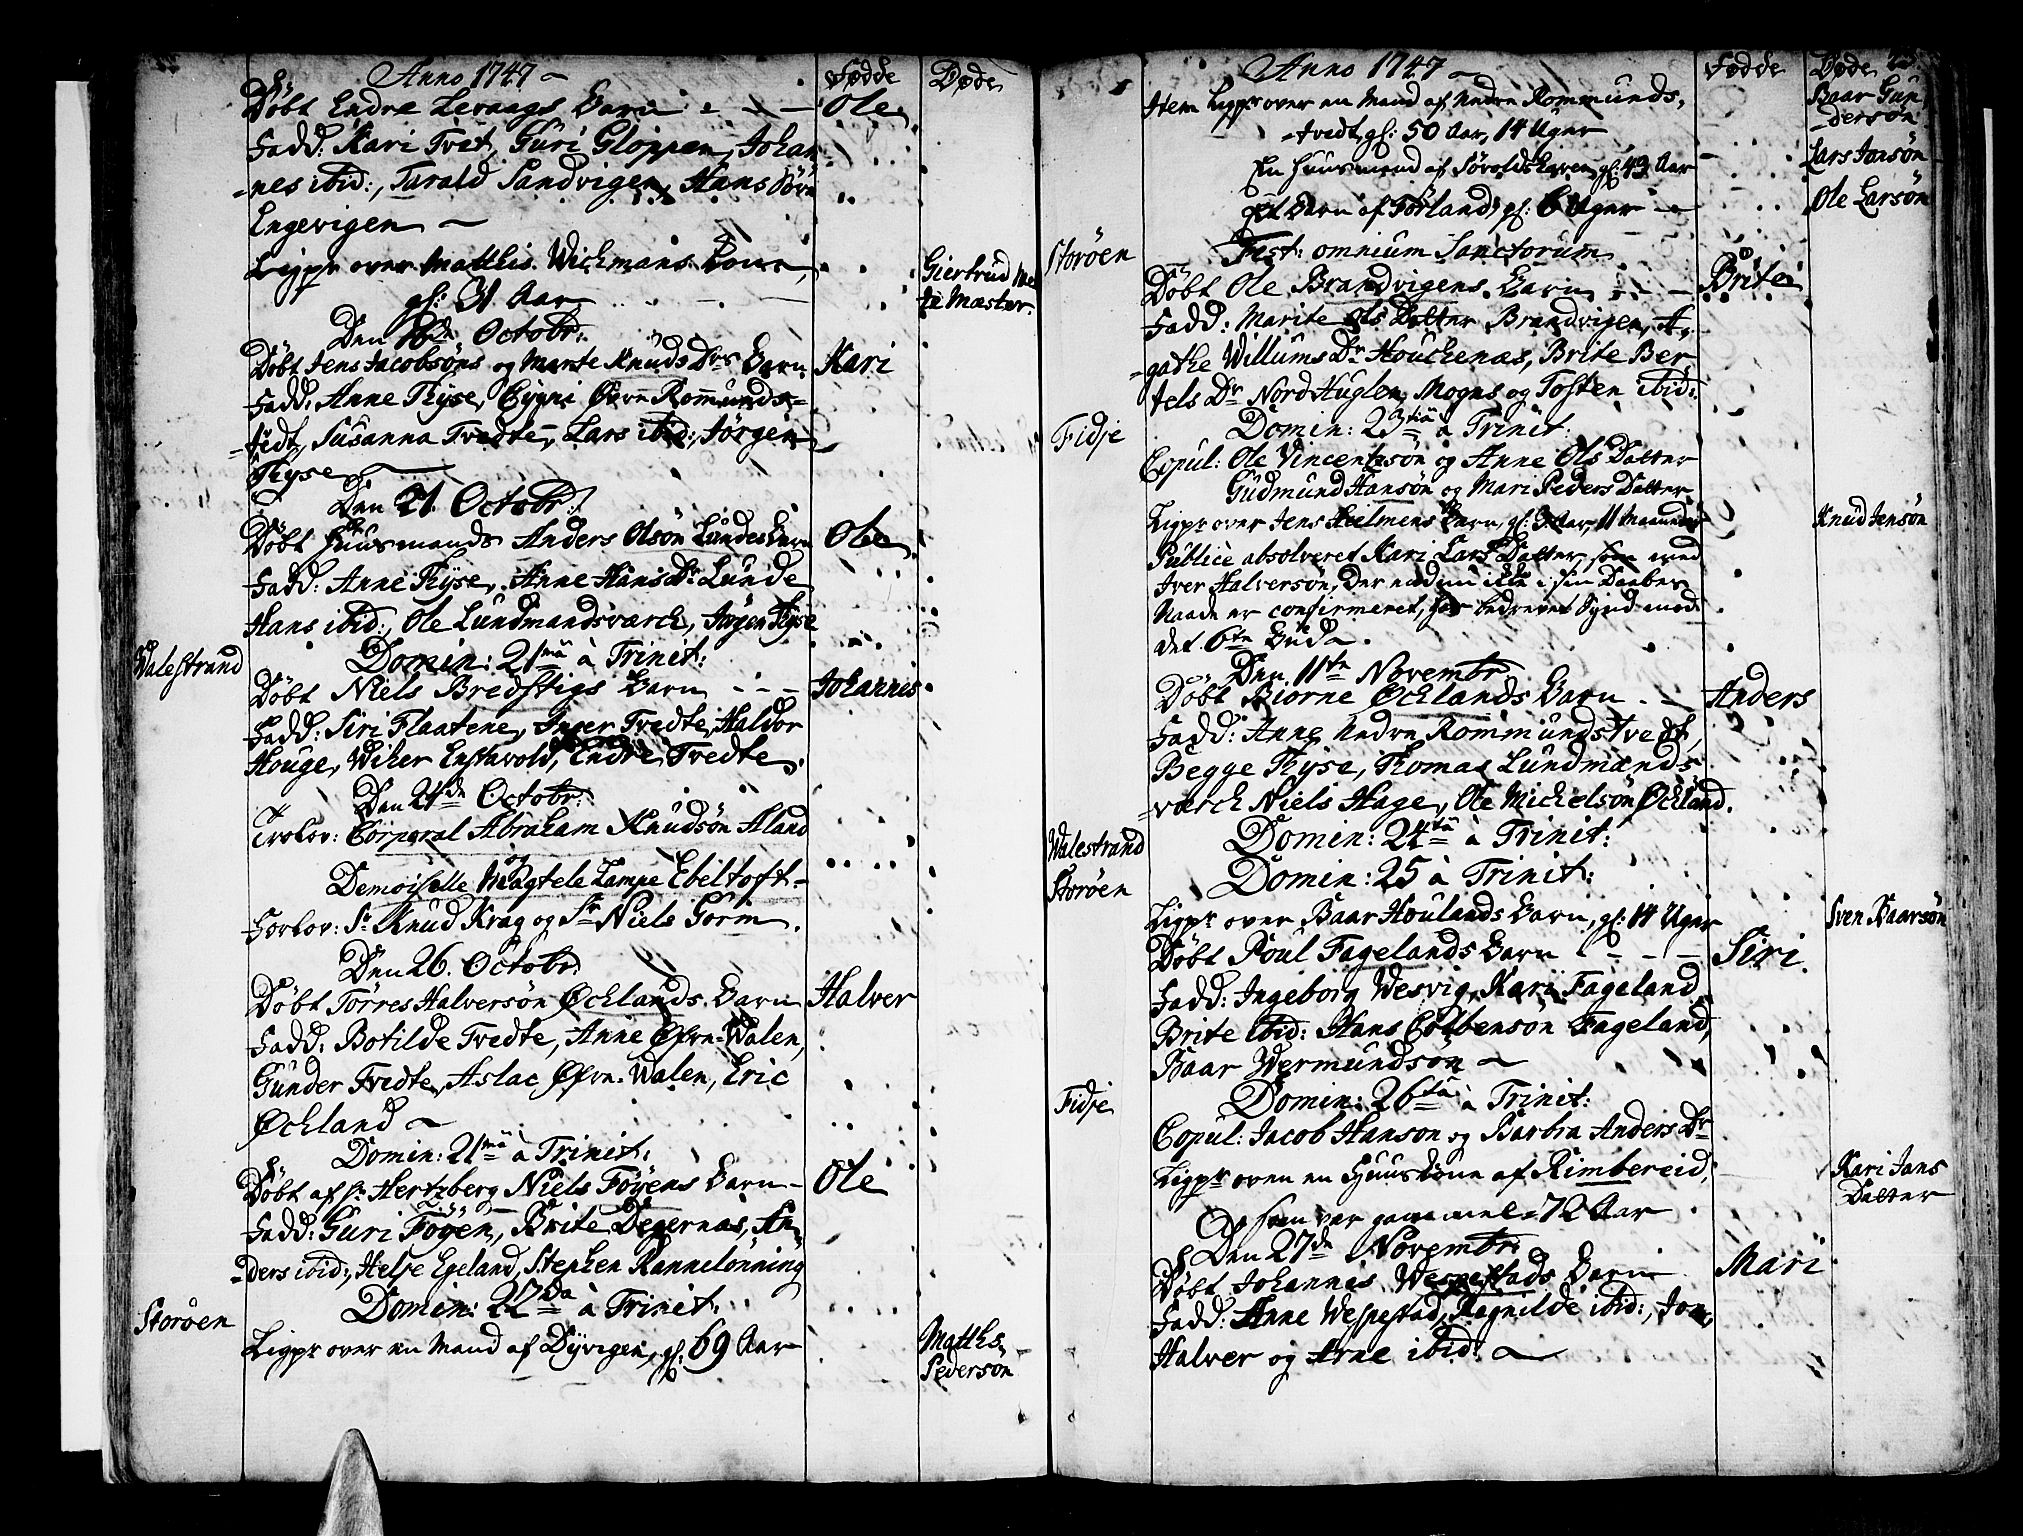 Anno 1747
Fødde
Døde
Døbt Endre Leraags Barn
Ole
Fadd: Kari Tvet, Guri Gloppen, Johan-
nes ibid:, Tarald Sandvigen, Hans Sörn
Engevigen
Ligpr over Matthis Wichmans Kone,
gl: 31 Aar
Giertrud
Mæster.
Den Octobr:
Døbt Jens Jacobsøns og Marte Knuds Dtrs Barn
Kari
Fadd: Anne Tyse, Øvre Rommunds-
tvedt, Susanna Tvedte, Lars ibid:, Jörgen
Tyse
Den 21 Octobr:
Døbt Huusmands Anders Olsøn Lundes Barn
Ole
Fadd: Anne Tyse, Anne Hans Dr Lunde
Hans ibid:, Ole Lundmandsværch, Jörgen Tyse
Walestrand
Domin: 21mâ à Trinit:
Døbt Niels Bredstigs Barn
Johannes
Fadd: Siri Flaatene, Inger Tvedte, Haldor
Houge, Wiker Enstavold, Endre Tvedte.
Den 24de Octobr:
Trolov: Corporal Abraham Knudsøn Aland
og
Demoiselle Magtele Lampe Ebeltoft
Forlov: Sr Knud Krag og Sr Niels Gorm.
Den 26. Octobr:
Døbt Törres Halversøn Øchlands Barn
Halver
Fadd: Botilde Tvedte, Anne Øfre-Walen,
Gunder Tvedte, Aslac Øfre-Walen, Eric
Øchland
Domin: 21mâ à Trinit:
Døbt af Hr Hertzberg Niels Föyens Barn
Ole
Fadd: Guri Föyen, Brite Degernæs, An-
ders ibid:, Helje Egeland, Stephen Rannelönning
Störöen
Domin: 22da à Trinit:
Ligpr over en Mand af Dyvigen, gl: 69 Aar
Matths
Pedersøn
Anno 1747
Fødde
Døde
Item Ligpr over en Mand af Nedre Rommunds-
tvedt, gl: 50 Aar, 14 Uger
Baar Gun-
dersøn
En Huusmand af gl: 43 Aar
Lars Jonsøn
Et Barn af Törland, gl: 6 Uger
Ole Larsøn
Störöen
Fest: omnium Sanctorum
Døbt Ole Brandvigens Barn
Brite
Fadd: Marite Ols Datter Brandvigen, A-
gathe Willums Dr Houchenæs, Brite Ber-
tels Dr Nord Huglen, Mogns og Tosten ibid:
Fidje
Domin: 23tiâ à Trinit:
Copul: Ole Vincentsøn og Anne Ols Datter
Gudmund Hansøn og Mari Peders Datter
Ligpr over Jens Hielmens Barn, gl: 3 Aar, 11 Maaneder
Knud Jensøn
Publicè absolveret Kari Lars Datter, som med
Iver Halversøn, der endnu ikke i sin Daabes
Naade er confirmeret, har bedrevet Synd mod
det 6te Bud.
Den 11te Novembr:
Døbt Biorne Øchlands Barn
Anders
Fadd: Anne Nedre Rommundstvedt,
Begge Tyse, Thomas Lundmands-
værch Niels Hage, Ole Michelsön Øchland.
Walestrand
Domin: 24tâ à Trinit:
Störöen
Domin: 25 à Trinit:
Ligpr over Baar Houlands Barn, gl: 14 Uger
Sven Baarsøn
Døbt Poul Fagelands Barn
Siri
Fadd: Ingeborg Wesvig, Kari Fageland
Brite ibid: Hans Colbensøn Fageland,
Baar Wermundsøn
Fidje
Domin: 26tâ à Trinit:
Copul: Jacob Hanson og Barbra Anders Dr
Ligpr over en Huuskone af Rimbereid,
som var gammel 72 Aar
Kari Jans
Datter
Den 27de Novembr:
Døbt Johannes Wespestads Barn
Mari
Fadd: Anne Wespestad, Ragnilde ibid:, Jon,
Halver og Arne ibid: